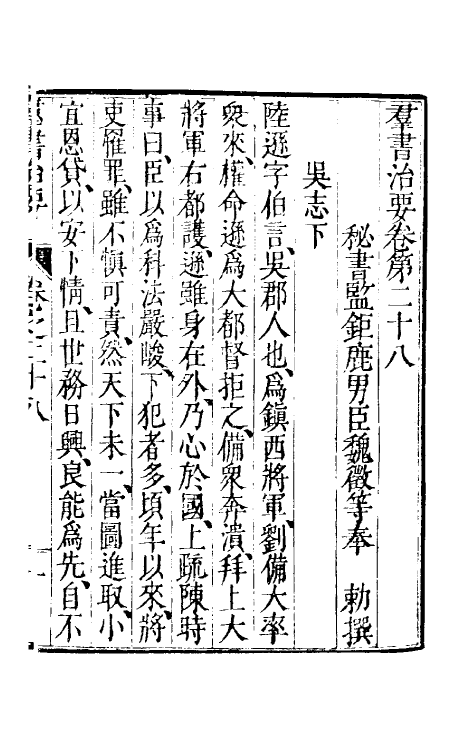 羣書治要卷第二十八
秘書監鉅鹿男臣魏徵等奉　勅撰
吳志下
陸遜字伯言、吳郡人也、爲鎭西將軍、劉備大率
衆來、權命遜爲大都督拒之、備衆奔潰、拜上大
將軍右都護、遜雖身在外、乃心於國、上疏陳時
事曰、臣以爲科法嚴峻、下犯者多、頃年以來、將
吏罹罪、雖不愼可責、然天下未一、當圖進取、小
宜恩貸、以安下情、且世務日興、良能爲先、自不
羣書治要
卷之二十八
一